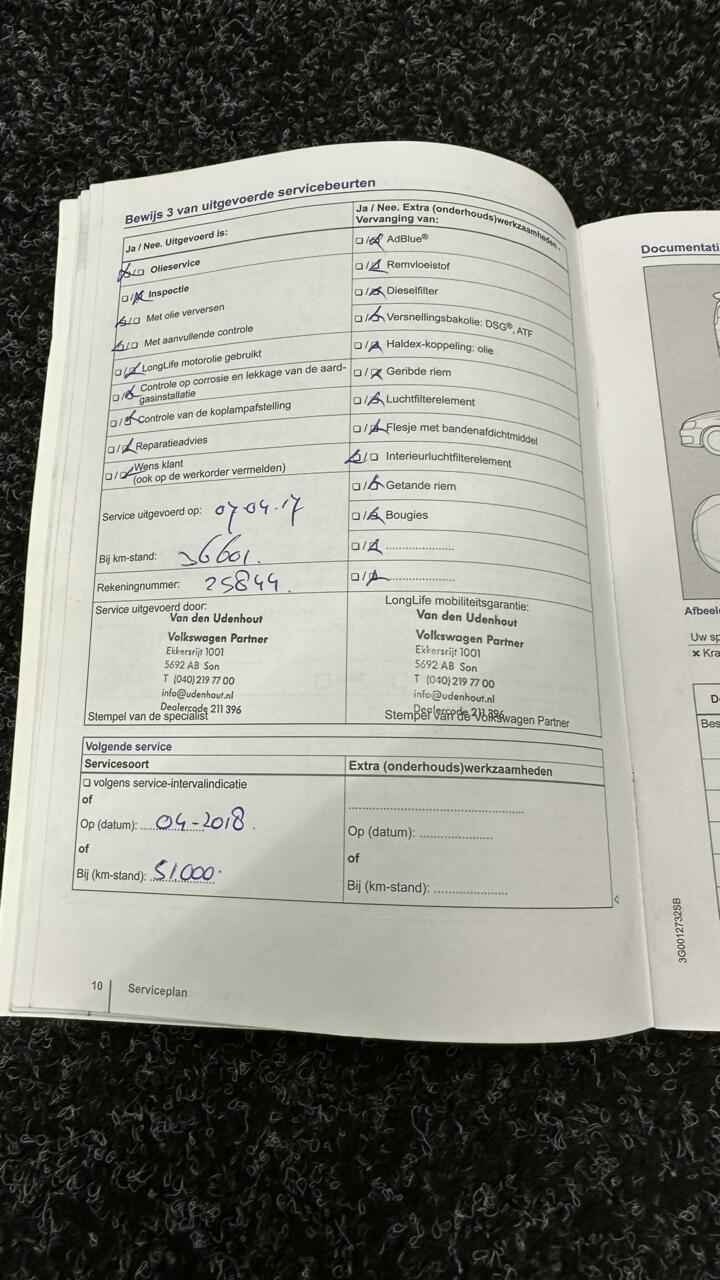 Bewijs 3 van uitgevoerde servicebeurten
Ja / Nee. Uitgevoerd is:
Olieservice
Inspectie
Met olie verversen
Met aanvullende controle
LongLife motorolie gebruikt
Controle op corrosie en lekkage van de aard-
gasinstallatie
Controle van de koplampafstelling
Reparatieadvies
Wens klant
(ook op de werkorder vermelden)
Service uitgevoerd op: 07 04 17
Bij km-stand: 36601.
Rekeningnummer: 25844.
Ja / Nee. Extra (onderhouds)werkzaamheden.
Vervanging van:
AdBlue®
Remvloeistof
Dieselfilter
Versnellingsbakolie: DSG®, ATF
Haldex-koppeling: olie
Geribde riem
Luchtfilterelement
Flesje met bandenafdichtmiddel
Interieurluchtfilterelement
Getande riem
Bougies
Service uitgevoerd door:
Van den Udenhout
Volkswagen Partner
Ekkersrijt 1001
5692 AB Son
T (040) 219 77 00
info@udenhout.nl
Dealercode 211 396
Stempel van de specialist
LongLife mobiliteitsgarantie:
Van den Udenhout
Volkswagen Partner
Ekkersrijt 1001
5692 AB Son
T (040) 219 77 00
info@udenhout.nl
Dealercode 211 396
Stempel van de Volkswagen Partner
Volgende service
Servicesoort
volgens service-intervalindicatie
of
Op (datum): 04-2018.
of
Bij (km-stand): 51000.
Extra (onderhouds)werkzaamheden
Op (datum):
of
Bij (km-stand):
10 Serviceplan
Documentati
Afbeel
Uw sp
× Kra
D
Bes
3G0012732SB